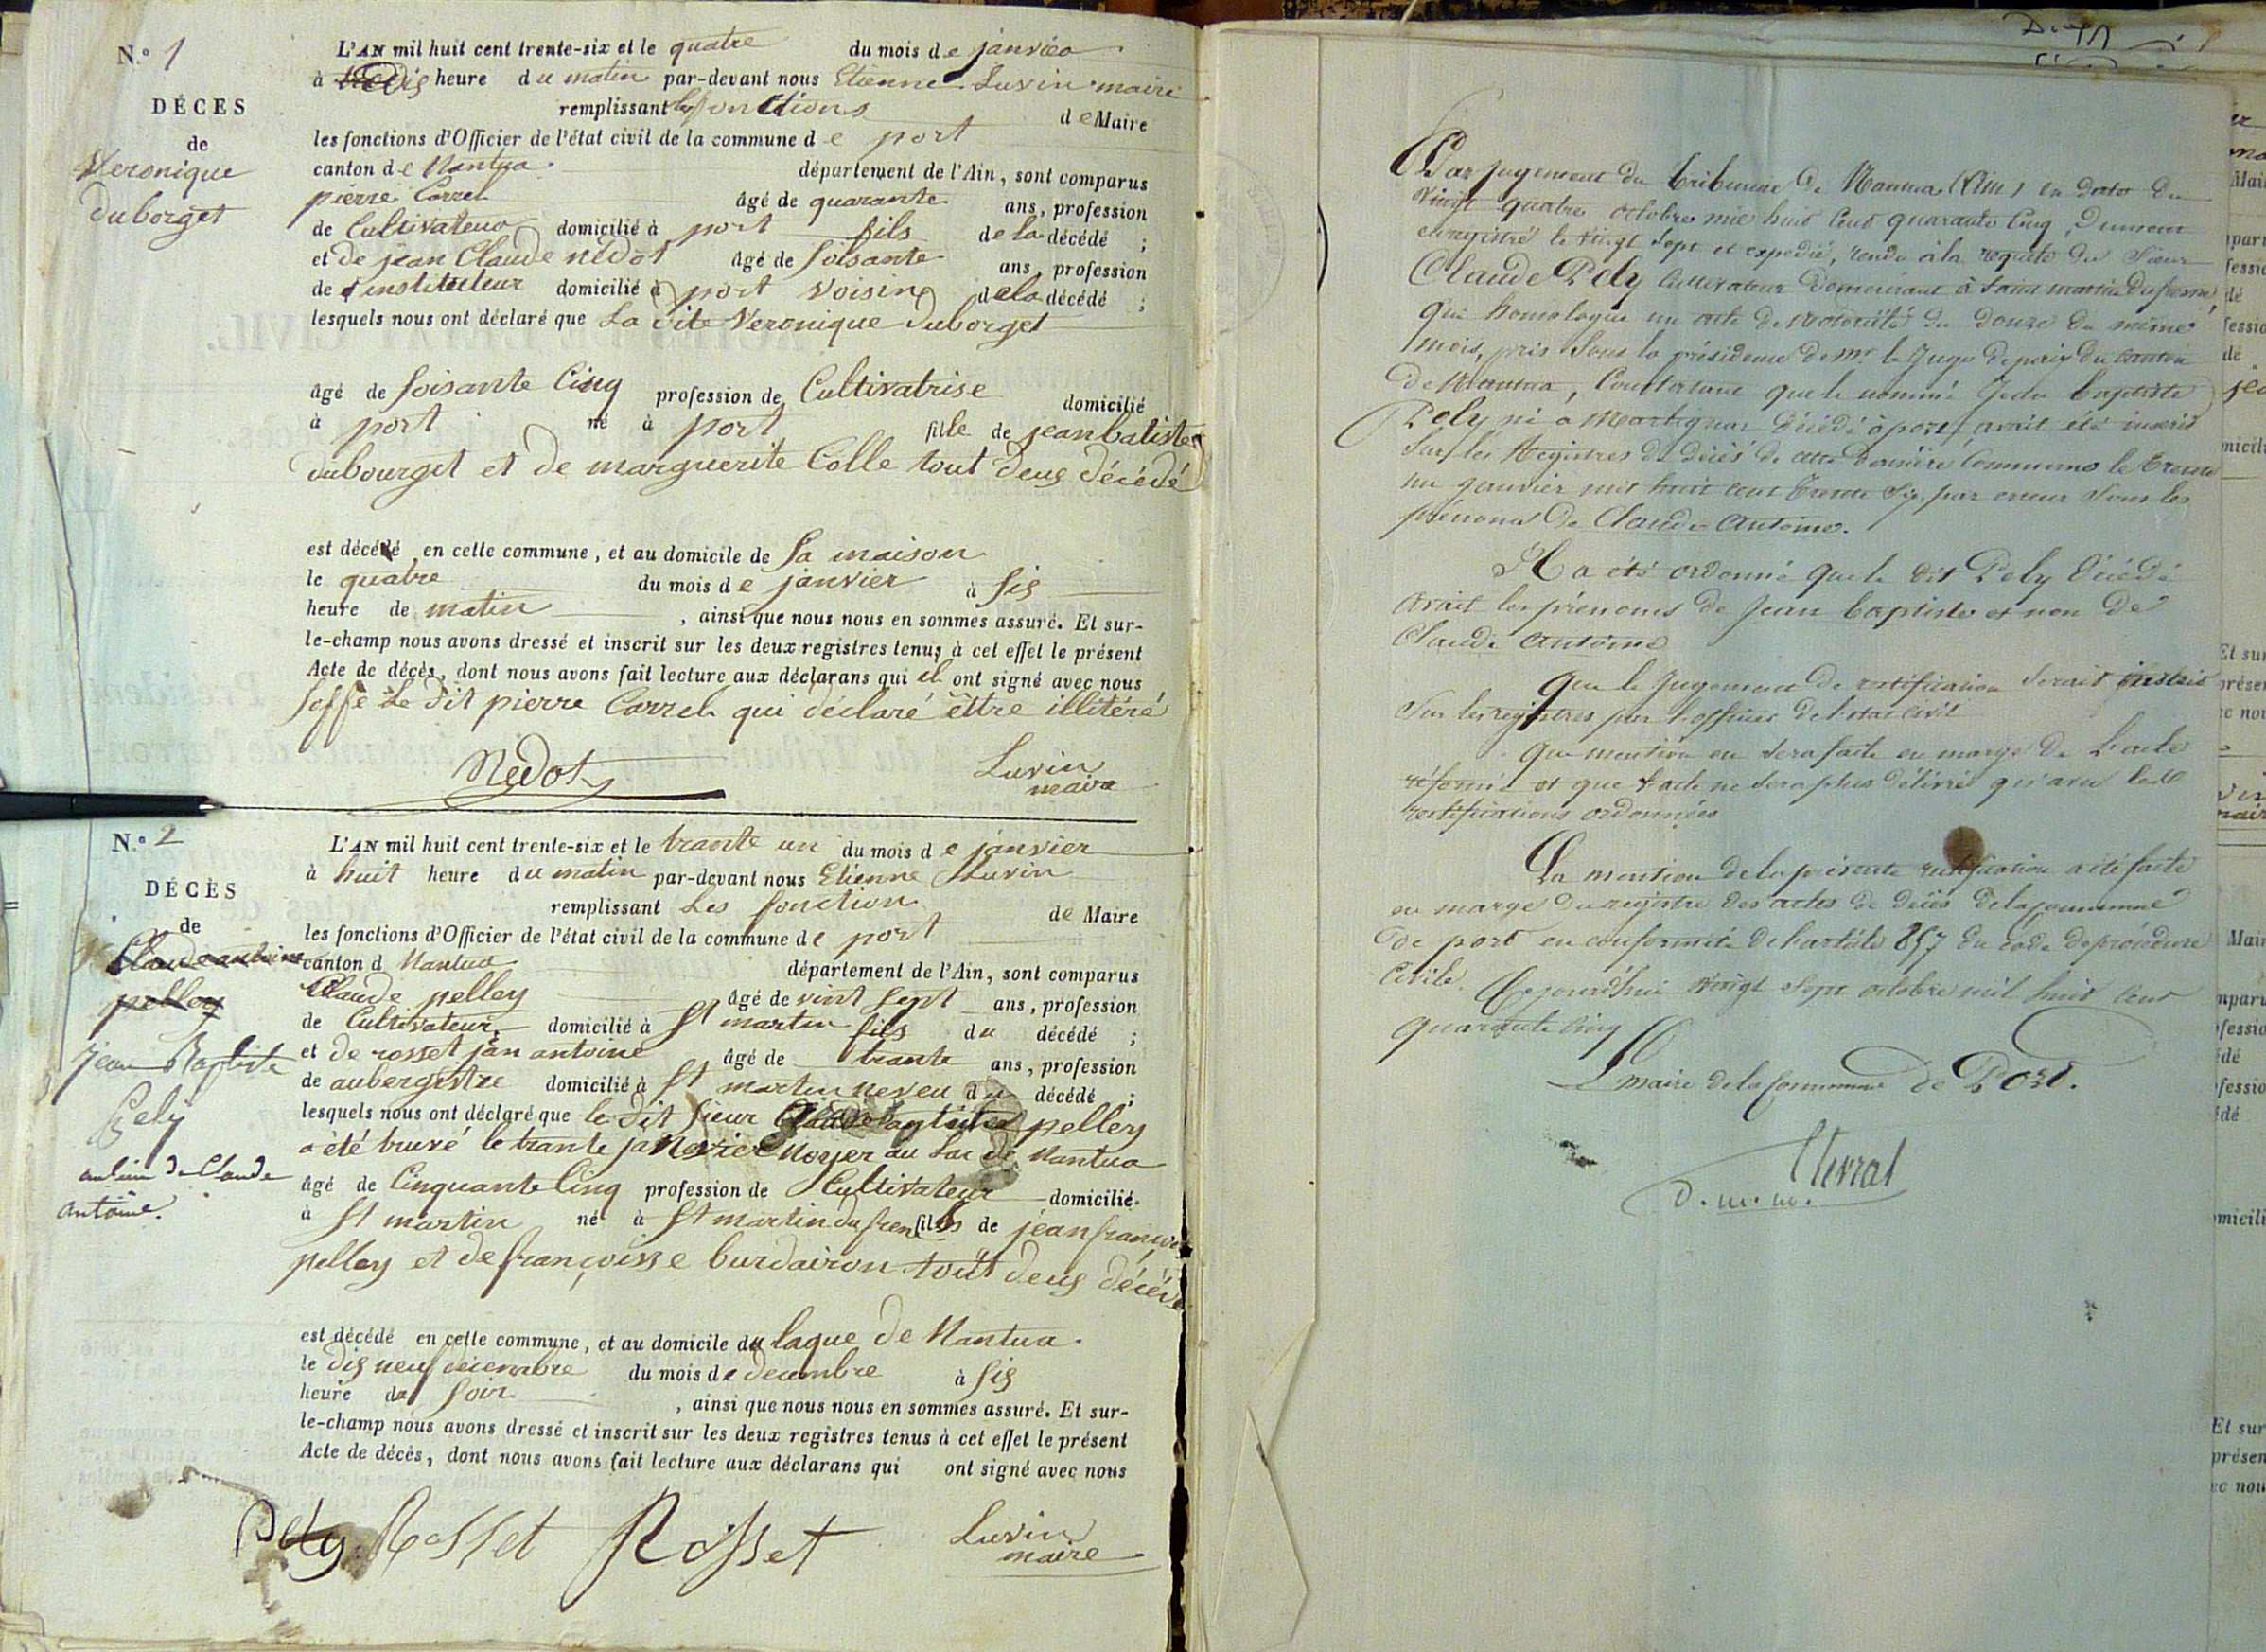 N.o 1
DÉCES
de
Veronique
duborget
L'AN mil huit cent trente-six et le quatre du mois de janvier
à heure du matin par-devant nous Etienne Luvin maire
remplissant les fonctions de Maire
les fonctions d'Officier de l'état civil de la commune de port
canton de Nantua département de l'Ain, sont comparus
pierre Carrel âgé de quarante ans, profession
de Cultivateur domicilié à port fils de la décédé ;
et de jean Claude nédot âgé de soisante ans, profession
de instituteur domicilié à port voisin de la décédé ;
lesquels nous ont déclaré que la dite Veronique duborget
âgé de soisante Cinq profession de Cultivatrise domicilié
à port né à port fille de jean batiste
dubourget et de marguerite Colle tout deus décédé
est décédé en cette commune, et au domicile de sa maison
le quatre du mois de janvier à sis
heure de matin , ainsi que nous nous en sommes assuré. Et sur-
le-champ nous avons dressé et inscrit sur les deux registres tenus à cet effet le présent
Acte de décès, dont nous avons fait lecture aux déclarans qui il ont signé avec nous
le dit pierre Carrel qui déclaré êttre illitéré
Nedot Luvin
maire
N.o 2
DÉCÈS
de
Claude antoine
pelley
jean Baptiste
Pely
au lieu de Claude
antoine.
L'AN mil huit cent trente-six et le trante un du mois de janvier
à huit heure du matin par-devant nous Etienne Luvin
remplissant les fonction de Maire
les fonctions d'Officier de l'état civil de la commune de port
canton d Nantua département de l'Ain, sont comparus
Claude pelley âgé de vint sept ans, profession
de Cultivateur domicilié à St martin fils du décédé ;
et de rosset jan antoine âgé de trante ans, profession
de aubergistre domicilié à St martin neveu du décédé ;
lesquels nous ont déclaré que le dit sieur pelley
a été truvé le trante janvier Noyer au Lac de Nantua
âgé de Cinquante Cinq profession de Cultivateur domicilié
à St martin né à St martin du fren fils de jean françois
pelley et de françoisse burdairon tout deus décédé
est décédé en cette commune, et au domicile du laque de Nantua.
le dis neuf décembre du mois de decembre à sis
heure du soir , ainsi que nous nous en sommes assuré. Et sur-
le-champ nous avons dressé et inscrit sur les deux registres tenus à cet effet le présent
Acte de décès, dont nous avons fait lecture aux déclarans qui ont signé avec nous
Pely Rosset Rosset Luvin
maire
Par jugement du tribunal de Nantua (Ain) en date du
vingt quatre octobre mil huit cent quarante cinq, dument
enregistré le vingt sept et expedié, rendu à la requête du Sieur
Claude Pely cultivateur demeurant à Saint martin du fresne,
qui homologue un acte de notoriété du douze du même
mois, pris sous la présidence de mr le Juge de paix du canton
de Nantua, Constatant que le nommé Jean baptiste
Pely né à Martignat décédé à port, avait été inscrit
sur les Registres de décès de cette dernière Commune le trente
un janvier mil huit cent trente six, par erreur sous les
prénoms de Claude Antoine.
Il a été ordonné que le dit Pely décédé
avait les prénoms de Jean baptiste et non de
Claude Antoine
Que le Jugement de rectification serait inscrit
sur les registres par l'officier de l'état civil
Que mention en sera faite en marge de l'acte
réformé et que l'acte ne sera plus délivré qu'avec les
rectifications ordonnées
La mention de la présente rectification a été faite
en marge du registre des actes de décès de la commune
de port en conformité de l'article 857 du code de procédure
Civile. Ce jourd'hui vingt sept octobre mil huit cent
quarante cinq
L maire de la Commune de Port.
d. m. m.